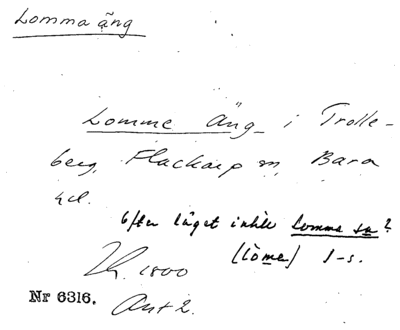 Lomma äng
Lomme Äng i Trolle-
berg, Flackarp sn, Bara
hd.
Efter läget inkle Lomma sn?
(lòme) I-s.
1800
Nr 6316. Ant 2.